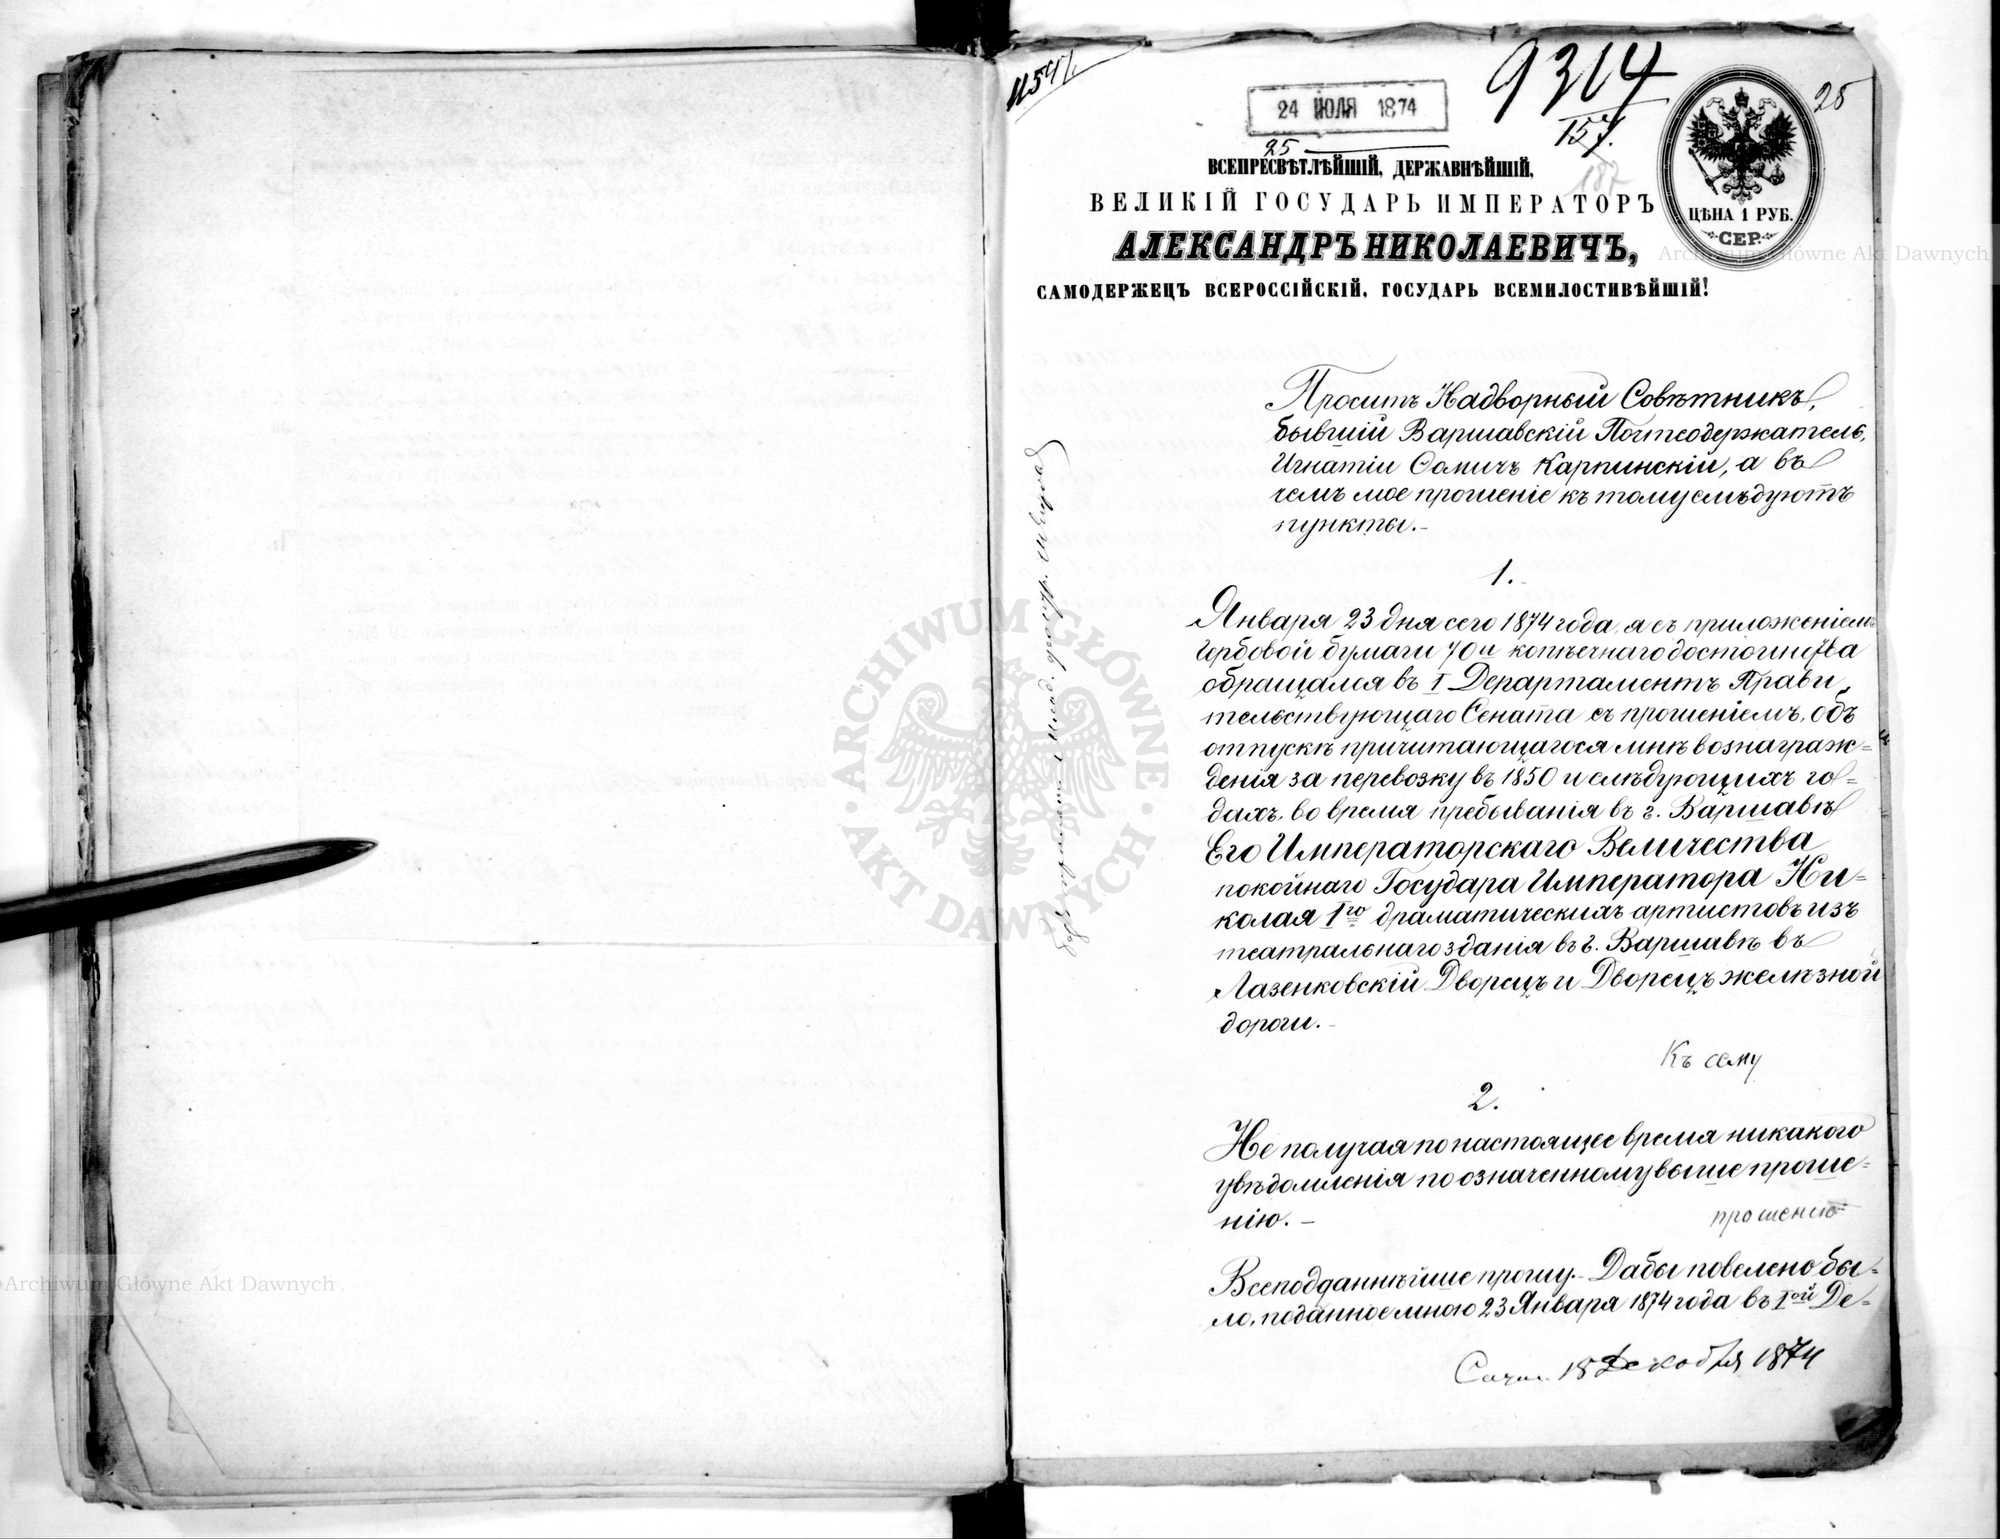 9314
157.
28
24 ИЮЛЯ 1874
25
187
ВСЕПРЕСВѢТЛѢЙШІЙ, ДЕРЖАВНѢЙШІЙ,
ВЕЛИКІЙ ГОСУДАРЬ ИМПЕРАТОРЪ
АЛЕКСАНДРЪ НИКОЛАЕВИЧЪ,
САМОДЕРЖЕЦЪ ВСЕРОССІЙСКІЙ, ГОСУДАРЬ ВСЕМИЛОСТИВѢЙШІЙ!
ЦѢНА 1 РУБ.
СЕР.
Проситъ Надворный Совѣтникъ,
бывшій Варшавскій Почтсодержатель,
Игнатій Карпинскій, а въ
чемъ мое прошеніе къ тому слѣдуютъ
пункты.-
1.
Января 23 дня сего 1874 года, я съ приложеніемъ
Гербовой бумаги 70и копѣечнаго достоинства
обращался въ I Департаментъ Прави
тельствующаго Сената съ прошеніемъ, объ
отпускѣ причитающагося мнѣ вознаграж=
денія за перевозку въ 1850 и слѣдующихъ го=
дахъ, во время пребыванія въ г. Варшавѣ
Его Императорскаго Величества
покойнаго Государа Императора Ни=
колая Iго драматическихъ артистовъ изъ
театральнаго зданія въ г. Варшавѣ въ
Лазенковскій Дворецъ и Дворецъ желѣзной
дороги.-
Къ сему
2.
Не получая по настоящее время никакого
увѣдомленія по означенному выше проше=
нію.-
прошенію
Всеподданнѣйше прошу.- Дабы повелено бы=
ло, поданное мною 23 Января 1874 года въ Iой Де=
18 Декабря 1874
ARCHIWUM GŁÓWNE
AKT DAWNYCH
Archiwum Główne Akt Dawnych
Archiwum Główne Akt Dawnych